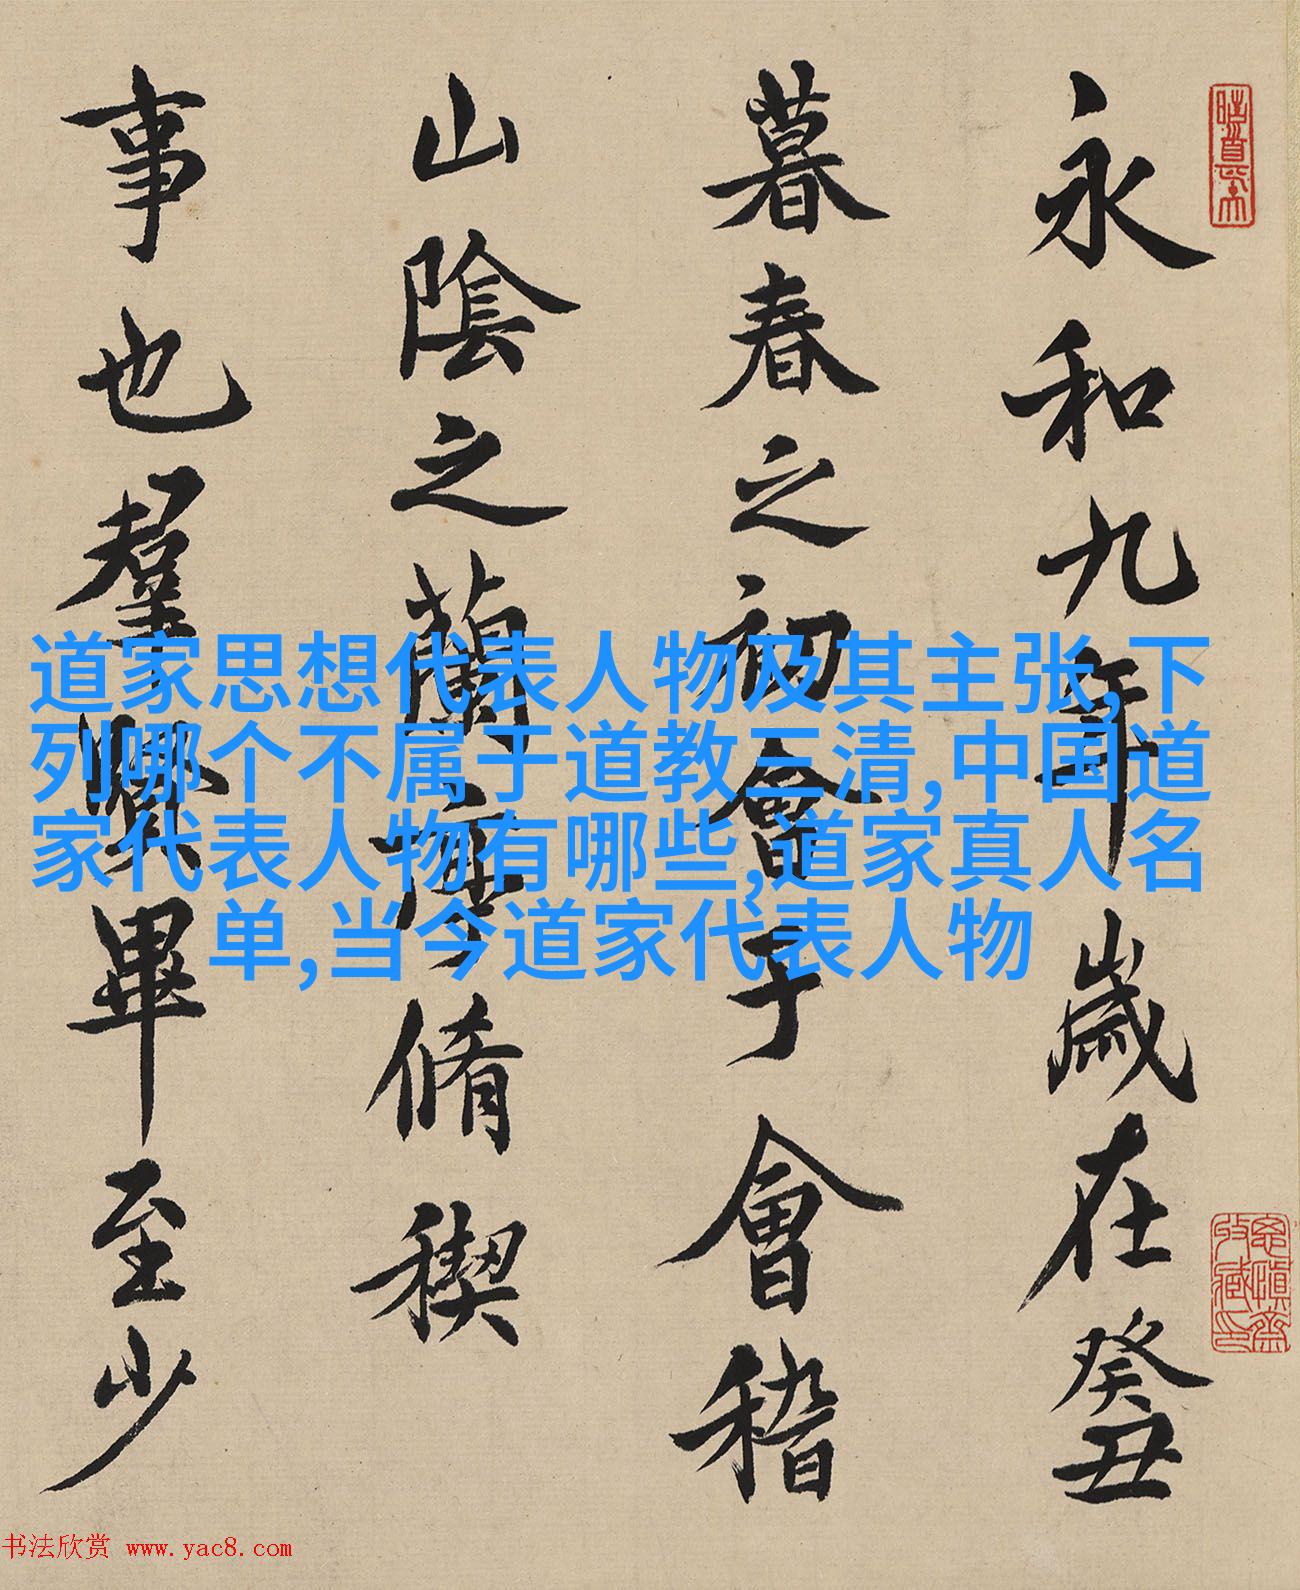 永和九年歲在癸丑
暮春之初會于會稽
山陰之蘭亭脩稧
事也羣賢畢至少
道家思想代表人物及其主张,下
列哪个不属于道教三清,中国道
家代表人物有哪些,道家真人名
单,当今道家代表人物
书法欣赏 www.yac8.com